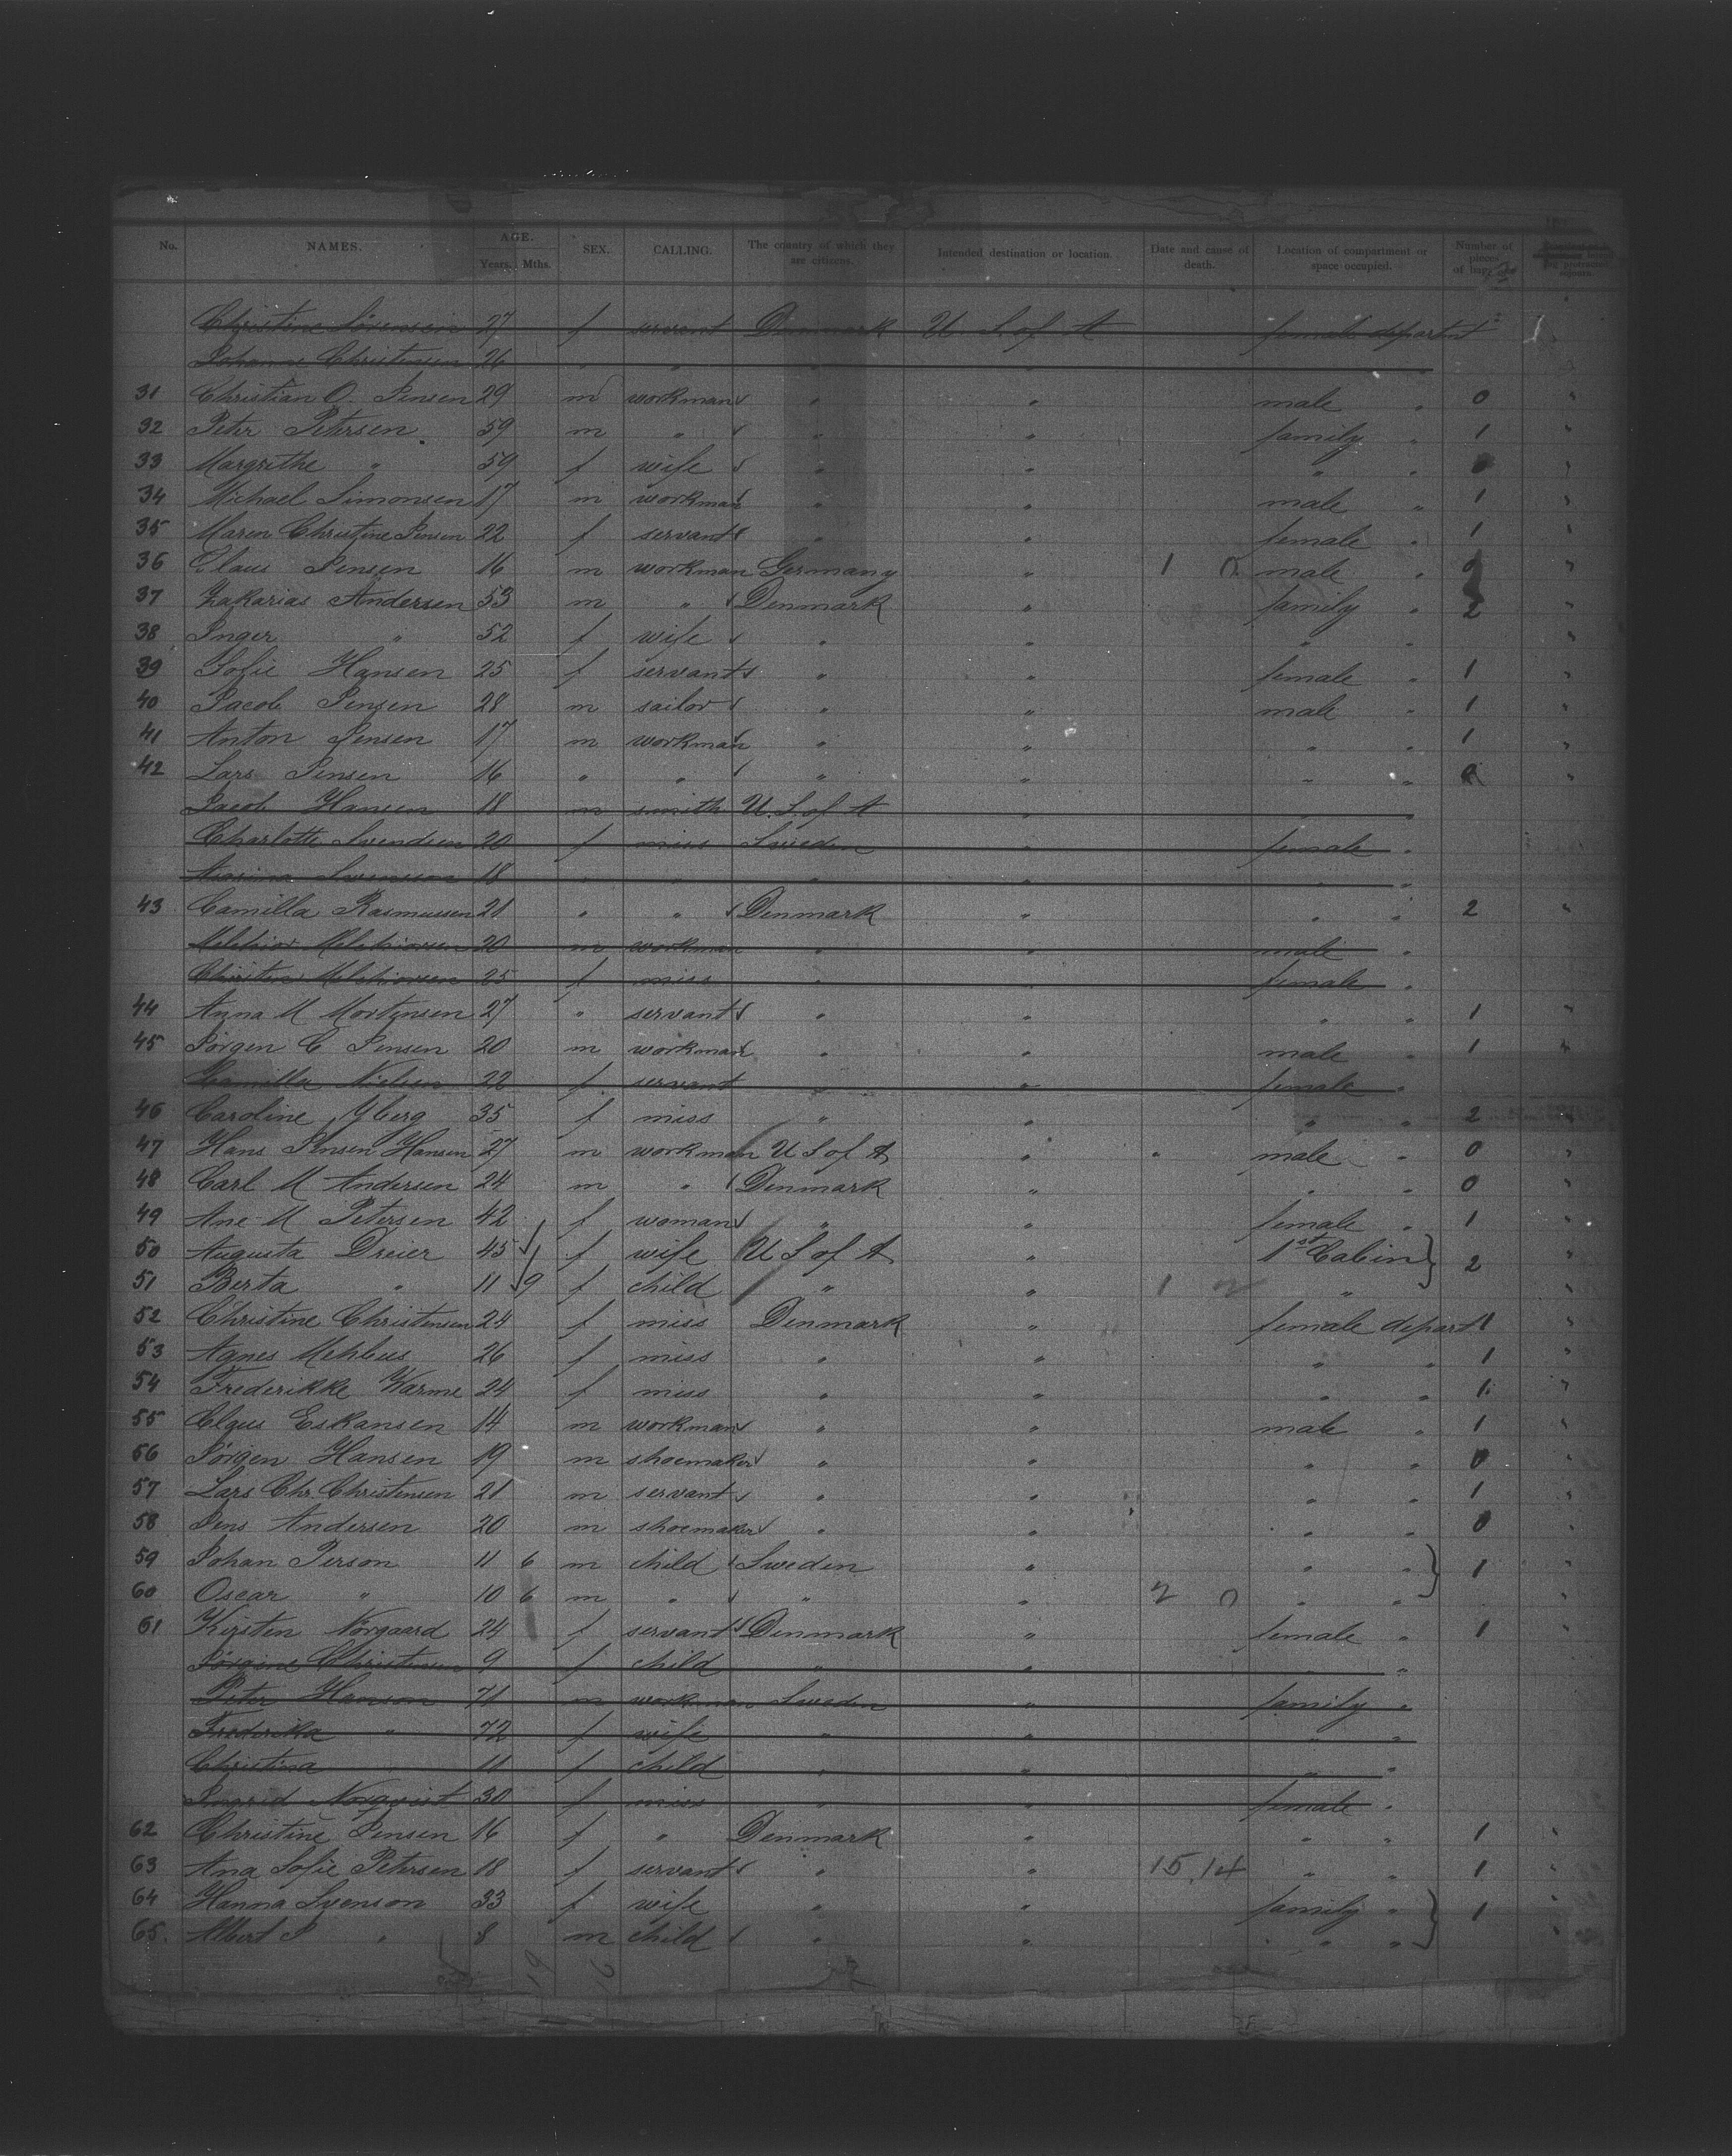 No. NAMES. AGE. Years. Mths. SEX. CALLING. The country of which they are citizens. Intended destination or location. Date and cause of death. Location of compartment or space occupied. Number of pieces of
Christine Sörensen 27 f servant Denmark U. S. of A female depart
Johanne Christensen 26 " " " " "
31 Christian O. Jensen 29 m workman " " male " 0 "
32 Peter Petersen 59 m " " " family " 1 "
33 Margrethe " 59 f wife " " " " "
34 Michael Simonsen 17 m workman " " male " 1 "
35 Maren Christine Jensen 22 f servant " " female " 1 "
36 Claus Jensen 16 m workman Germany " 1 male " "
37 Zakarias Andersen 53 m " Denmark " family " 2 "
38 Inger " 52 f wife " " " " "
39 Sofie Hansen 25 f servant " " female " 1 "
40 Jacob Jensen 28 m sailor " " male " 1 "
41 Anton Jensen 17 m workman " " " " 1 "
42 Lars Jensen 16 " " " " " " "
Jacob Hansen 18 m smith U. S. of A " "
Charlotte Svendsen 20 f miss Sweden " female "
Svensson 18 " " " " " "
43 Camilla Rasmussen 21 " " Denmark " " " 2 "
Melchior Melchiorsen 20 m workman " " male "
Melchiorsen 25 f miss " " female "
44 Anna M Mortensen 27 " servant " " " " 1 "
45 Jörgen C Jensen 20 m workman " " male " 1 "
Camilla Nielsen 22 f servant " " female "
46 Caroline Yberg 35 f miss " " " " 2 "
47 Hans Jensen Hansen 27 m workman U S of A " " male " 0 "
48 Carl M Andersen 24 m " Denmark " " " 0 "
49 Ane M Petersen 42 f woman " " female " 1 "
50 Augusta Dreier 45 f wife U S of A " 1st Cabin 2
51 Berta " 11 9 f child " " 1 " "
52 Christine Christensen 24 f miss Denmark " female depart 1 "
53 Agnes Mehbus 26 f miss " " " " 1 "
54 Frederikke Warme 24 f miss " " " " 1 "
55 Claus Eskansen 14 m workman " " male " 1 "
56 Jörgen Hansen 19 m shoemaker " " " " 0 "
57 Lars Chr. Christensen 21 m servant " " " " 1 "
58 Jens Andersen 20 m shoemaker " " " " 0 "
59 Johan Person 11 6 m child Sweden " " " 1 "
60 Oscar " 10 6 m " " " 2 " " "
61 Kirsten Nörgaard 24 f servant Denmark " female " 1 "
Jörgine Christensen 9 f child " " " "
Peter Hanson 71 m workman Sweden " family "
Frederika " 72 f wife " " " "
Christina " 11 f child " " " "
Ingrid Norqvist 30 f miss " " female "
62 Christine Jensen 16 f " Denmark " " " 1 "
63 Ana Sofie Petersen 18 f servant " " 15.14 " " 1 "
64 Hanna Svenson 33 f wife " " family " 1 "
65. Albert J " 8 m child " " " " "